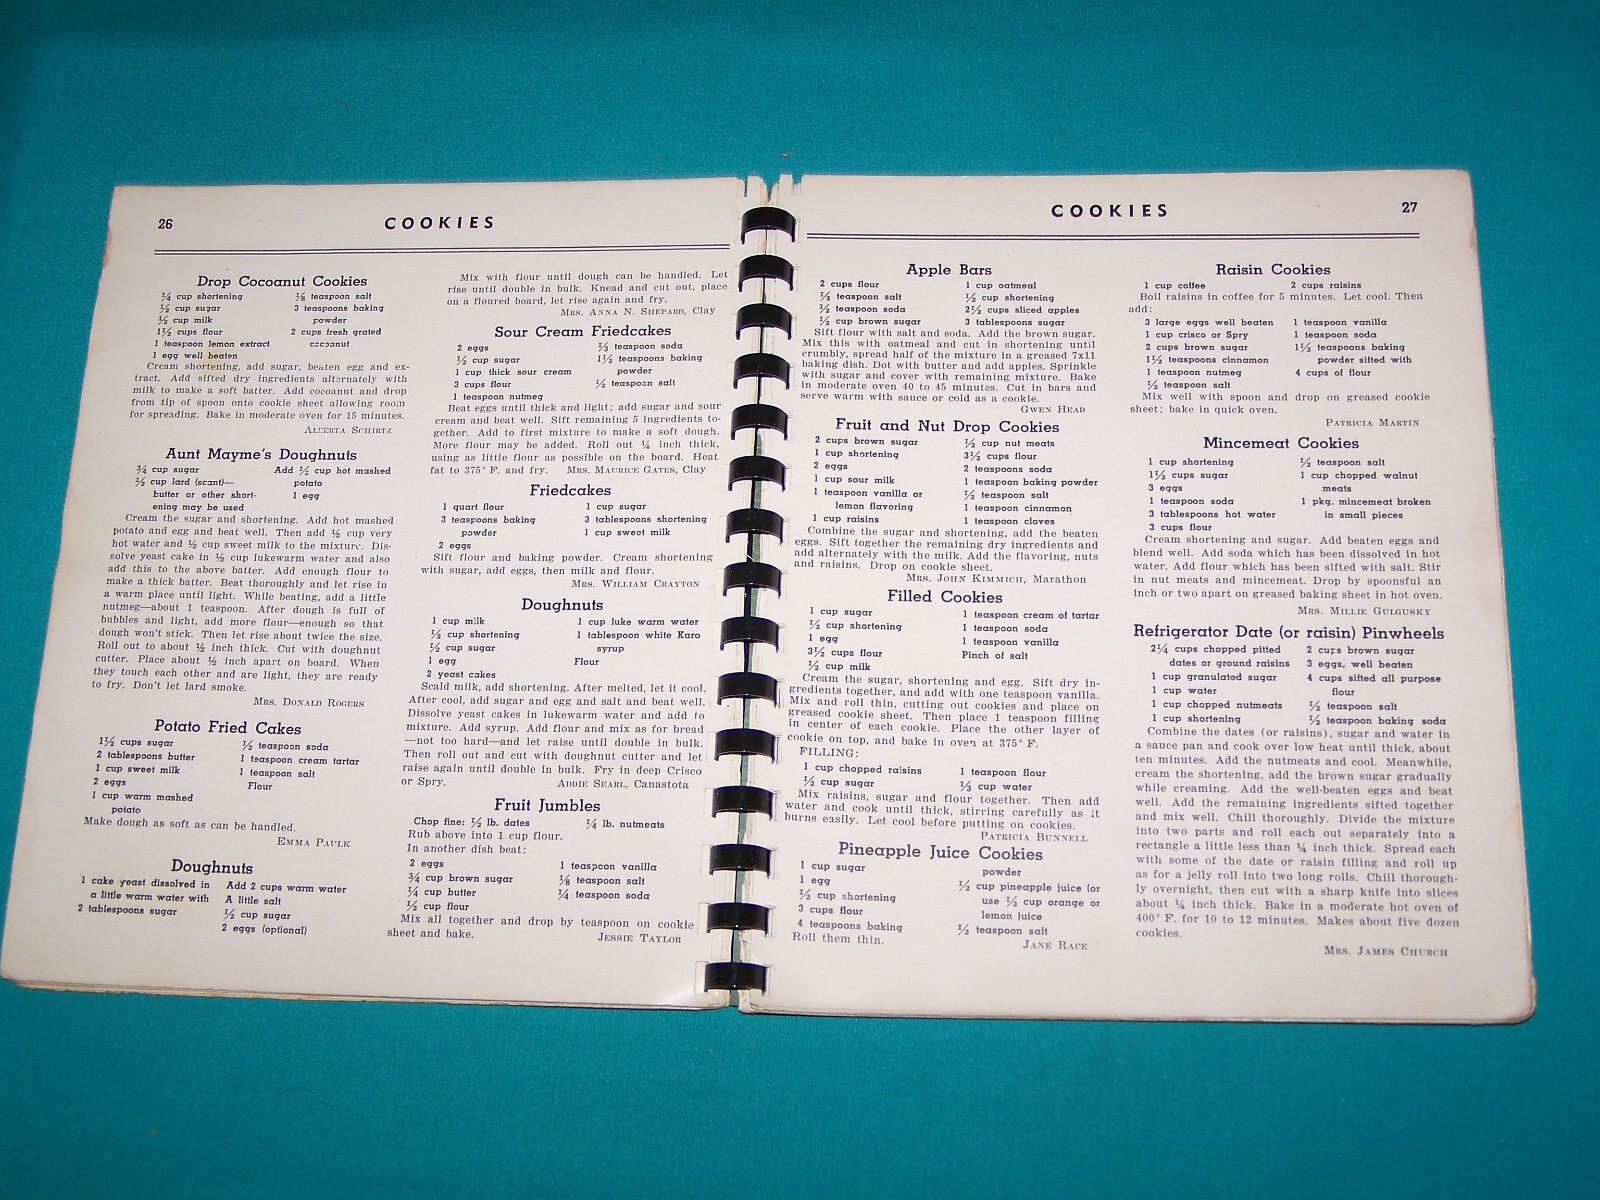 26
COOKIES
Drop Cocoanut Cookies
¼ cup shortening
½ cup sugar
½ cup milk
1½ cups flour
1 teaspoon lemon extract
1 egg well beaten
⅛ teaspoon salt
3 teaspoons baking
powder
2 cups fresh grated
cocoanut
Cream shortening, add sugar, beaten egg and ex-
tract. Add sifted dry ingredients alternately with
milk to make a soft batter. Add cocoanut and drop
from tip of spoon onto cookie sheet allowing room
for spreading. Bake in moderate oven for 15 minutes.
ALBERTA SCHIRTZ
Aunt Mayme's Doughnuts
¾ cup sugar
½ cup lard (scant)—
butter or other short-
ening may be used
Add ½ cup hot mashed
potato
1 egg
Cream the sugar and shortening. Add hot mashed
potato and egg and beat well. Then add ½ cup very
hot water and ½ cup sweet milk to the mixture. Dis-
solve yeast cake in ½ cup lukewarm water and also
add this to the above batter. Add enough flour to
make a thick batter. Beat thoroughly and let rise in
a warm place until light. While beating, add a little
nutmeg—about 1 teaspoon. After dough is full of
bubbles and light, add more flour—enough so that
dough won't stick. Then let rise about twice the size.
Roll out to about ½ inch thick. Cut with doughnut
cutter. Place about ½ inch apart on board. When
they touch each other and are light, they are ready
to fry. Don't let lard smoke.
MRS. DONALD ROGERS
Potato Fried Cakes
1½ cups sugar
2 tablespoons butter
1 cup sweet milk
2 eggs
1 cup warm mashed
potato
½ teaspoon soda
1 teaspoon cream tartar
1 teaspoon salt
Flour
Make dough as soft as can be handled.
EMMA PAULK
Doughnuts
1 cake yeast dissolved in
a little warm water with
2 tablespoons sugar
Add 2 cups warm water
A little salt
½ cup sugar
2 eggs (optional)
Mix with flour until dough can be handled. Let
rise until double in bulk. Knead and cut out, place
on a floured board, let rise again and fry.
MRS. ANNA N. SHEPARD, Clay
Sour Cream Friedcakes
2 eggs
½ cup sugar
1 cup thick sour cream
3 cups flour
1 teaspoon nutmeg
⅓ teaspoon soda
1½ teaspoons baking
powder
½ teaspoon salt
Beat eggs until thick and light; add sugar and sour
cream and beat well. Sift remaining 5 ingredients to-
gether. Add to first mixture to make a soft dough.
More flour may be added. Roll out ¼ inch thick,
using as little flour as possible on the board. Heat
fat to 375° F. and fry. MRS. MAURICE GATES, Clay
Friedcakes
1 quart flour
3 teaspoons baking
powder
2 eggs
1 cup sugar
3 tablespoons shortening
1 cup sweet milk
Sift flour and baking powder. Cream shortening
with sugar, add eggs, then milk and flour.
MRS. WILLIAM CRAYTON
Doughnuts
1 cup milk
½ cup shortening
½ cup sugar
1 egg
2 yeast cakes
1 cup luke warm water
1 tablespoon white Karo
syrup
Flour
Scald milk, add shortening. After melted, let it cool.
After cool, add sugar and egg and salt and beat well.
Dissolve yeast cakes in lukewarm water and add to
mixture. Add syrup. Add flour and mix as for bread
—not too hard—and let raise until double in bulk.
Then roll out and cut with doughnut cutter and let
raise again until double in bulk. Fry in deep Crisco
or Spry. ADDIE SEARL, Canastota
Fruit Jumbles
Chop fine: ½ lb. dates
¼ lb. nutmeats
Rub above into 1 cup flour.
In another dish beat:
2 eggs
¾ cup brown sugar
¼ cup butter
½ cup flour
1 teaspoon vanilla
⅛ teaspoon salt
¼ teaspoon soda
Mix all together and drop by teaspoon on cookie
sheet and bake. JESSIE TAYLOR
COOKIES
27
Apple Bars
2 cups flour
½ teaspoon salt
½ teaspoon soda
½ cup brown sugar
1 cup oatmeal
½ cup shortening
2½ cups sliced apples
3 tablespoons sugar
Sift flour with salt and soda. Add the brown sugar.
Mix this with oatmeal and cut in shortening until
crumbly, spread half of the mixture in a greased 7x11
baking dish. Dot with butter and add apples. Sprinkle
with sugar and cover with remaining mixture. Bake
in moderate oven 40 to 45 minutes. Cut in bars and
serve warm with sauce or cold as a cookie.
GWEN HEAD
Fruit and Nut Drop Cookies
2 cups brown sugar
1 cup shortening
2 eggs
1 cup sour milk
1 teaspoon vanilla or
lemon flavoring
1 cup raisins
½ cup nut meats
3½ cups flour
2 teaspoons soda
1 teaspoon baking powder
½ teaspoon salt
1 teaspoon cinnamon
1 teaspoon cloves
Combine the sugar and shortening, add the beaten
eggs. Sift together the remaining dry ingredients and
add alternately with the milk. Add the flavoring, nuts
and raisins. Drop on cookie sheet.
MRS. JOHN KIMMICH, Marathon
Filled Cookies
1 cup sugar
½ cup shortening
1 egg
3½ cups flour
½ cup milk
1 teaspoon cream of tartar
1 teaspoon soda
1 teaspoon vanilla
Pinch of salt
Cream the sugar, shortening and egg. Sift dry in-
gredients together, and add with one teaspoon vanilla.
Mix and roll thin, cutting out cookies and place on
greased cookie sheet. Then place 1 teaspoon filling
in center of each cookie. Place the other layer of
cookie on top, and bake in oven at 375° F.
FILLING:
1 cup chopped raisins
½ cup sugar
1 teaspoon flour
⅓ cup water
Mix raisins, sugar and flour together. Then add
water and cook until thick, stirring carefully as it
burns easily. Let cool before putting on cookies.
PATRICIA BUNNELL
Pineapple Juice Cookies
1 cup sugar
1 egg
½ cup shortening
3 cups flour
4 teaspoons baking
powder
½ cup pineapple juice (or
use ½ cup orange or
lemon juice
½ teaspoon salt
Roll them thin.
JANE RACE
Raisin Cookies
1 cup coffee
2 cups raisins
Boil raisins in coffee for 5 minutes. Let cool. Then
add:
3 large eggs well beaten
1 cup crisco or Spry
2 cups brown sugar
1½ teaspoons cinnamon
1 teaspoon nutmeg
½ teaspoon salt
1 teaspoon vanilla
1 teaspoon soda
1½ teaspoons baking
powder sifted with
4 cups of flour
Mix well with spoon and drop on greased cookie
sheet; bake in quick oven.
PATRICIA MARTIN
Mincemeat Cookies
1 cup shortening
1½ cups sugar
3 eggs
1 teaspoon soda
3 tablespoons hot water
3 cups flour
½ teaspoon salt
1 cup chopped walnut
meats
1 pkg. mincemeat broken
in small pieces
Cream shortening and sugar. Add beaten eggs and
blend well. Add soda which has been dissolved in hot
water. Add flour which has been sifted with salt. Stir
in nut meats and mincemeat. Drop by spoonsful an
inch or two apart on greased baking sheet in hot oven.
MRS. MILLIE GULGUSKY
Refrigerator Date (or raisin) Pinwheels
2¼ cups chopped pitted
dates or ground raisins
1 cup granulated sugar
1 cup water
1 cup chopped nutmeats
1 cup shortening
2 cups brown sugar
3 eggs, well beaten
4 cups sifted all purpose
flour
½ teaspoon salt
½ teaspoon baking soda
Combine the dates (or raisins), sugar and water in
a sauce pan and cook over low heat until thick, about
ten minutes. Add the nutmeats and cool. Meanwhile,
cream the shortening, add the brown sugar gradually
while creaming. Add the well-beaten eggs and beat
well. Add the remaining ingredients sifted together
and mix well. Chill thoroughly. Divide the mixture
into two parts and roll each out separately into a
rectangle a little less than ¼ inch thick. Spread each
with some of the date or raisin filling and roll up
as for a jelly roll into two long rolls. Chill thorough-
ly overnight, then cut with a sharp knife into slices
about ¼ inch thick. Bake in a moderate hot oven of
400° F. for 10 to 12 minutes. Makes about five dozen
cookies.
MRS. JAMES CHURCH